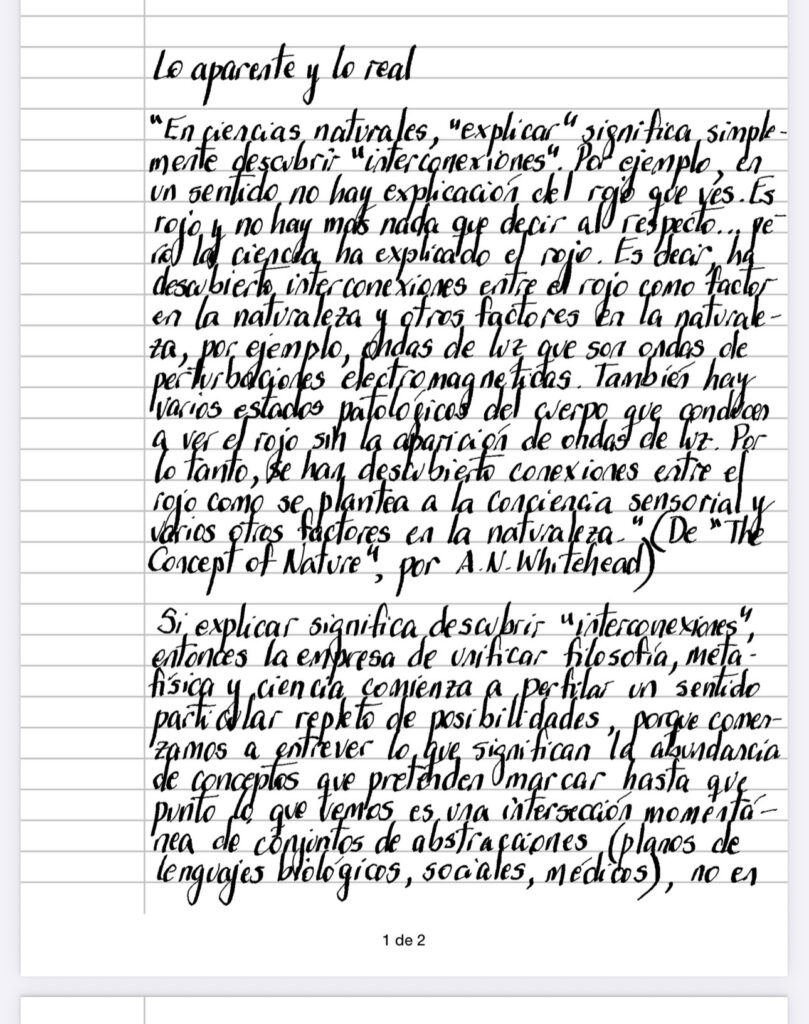 Lo aparente y lo real
"En ciencias naturales, "explicar" significa simple-
mente descubrir "interconexiones". Por ejemplo, en
un sentido no hay explicación del rojo que ves. Es
rojo y no hay más nada que decir al respecto... pe-
ro la ciencia ha explicado el rojo. Es decir, ha
descubierto interconexiones entre el rojo como factor
en la naturaleza y otros factores en la naturale-
za, por ejemplo, ondas de luz que son ondas de
perturbaciones electromagnéticas. También hay
varios estados patológicos del cuerpo que conducen
a ver el rojo sin la aparición de ondas de luz. Por
lo tanto, se han descubierto conexiones entre el
rojo como se plantea a la conciencia sensorial y
varios otros factores en la naturaleza." (De "The
Concept of Nature", por A.N. Whitehead)
Si explicar significa descubrir "interconexiones",
entonces la empresa de unificar filosofía, meta-
física y ciencia comienza a perfilar un sentido
particular repleto de posibilidades, porque comen-
zamos a entrever lo que significan la abundancia
de conceptos que pretenden marcar hasta que
punto lo que vemos es una intersección momentá-
nea de conjuntos de abstracciones (planos de
lenguajes biológicos, sociales, médicos), no en
1 de 2